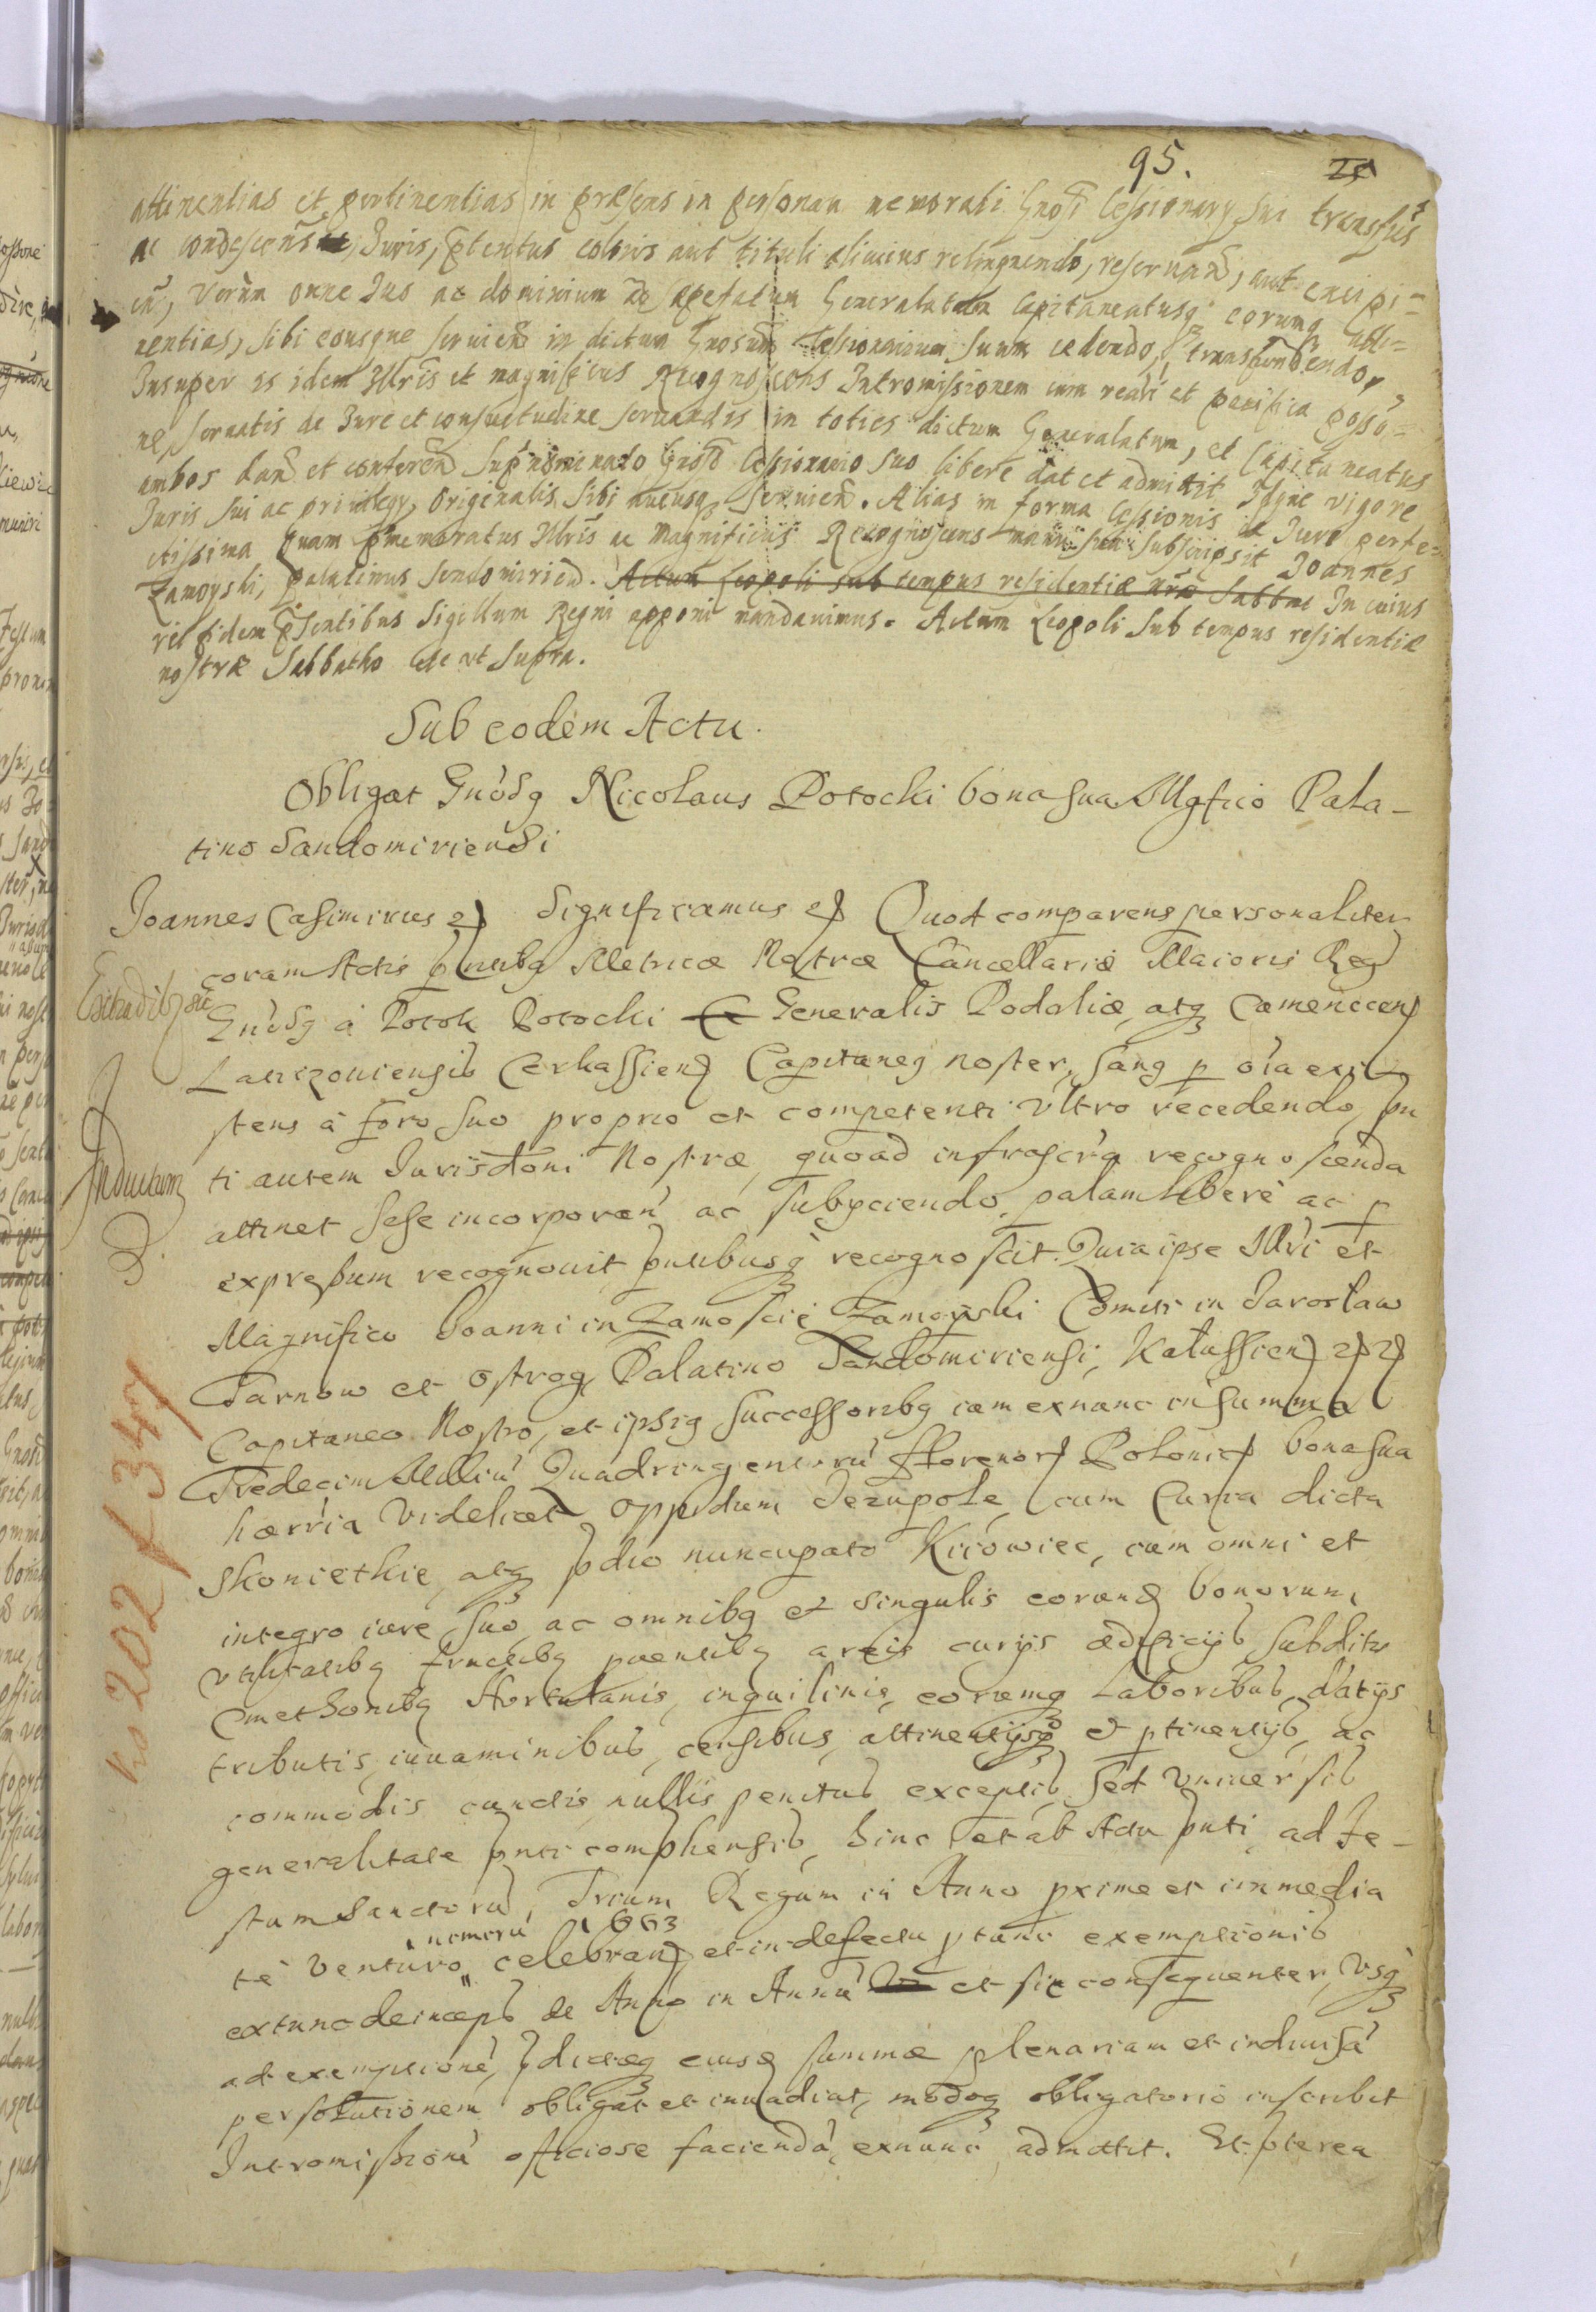 95.
attinentias et pertinentias in præsens in personam memorati Gnosi Cessionarÿ sui transfus
ac condescens, Juris, ptentus coloris aut tituli alicuius relinquendo, reseruand, aut excipi=
en, verum omne Jus ac dominium de repetatum Generalatum Capitaneatusq eorumq atti=
nentias, sibi eousque seruien in dictum Gnosum Cessionarium suum cedendo, transfundendo,
Insuper is idem Illris et magnificus Recognoscens Intromissionem cum reali et pacifica posso=
ne, seruatis de Jure et consuetudine seruandis in toties dictum Generalatum, et Capitaneatus
ambos dand et conferend supnominato Gnoso Cessionario suo libere dat et admittit Idque vigore
Juris sui ac priuilegÿ, originalis sibi hucusq seruien. Alias in forma Cessionis de Jure perfe=
ctissima Quam pmemoratus Illris ac Magnificus Recognoscens manu sua subscripsit Joannes
Zamoyski, palatinus Sendomirien. Actum Leopoli sub tempus residentiæ nræ Sabbat In cuius
rei fidem psentibus Sigillum Regni apponi mandauimus. Actum Leopoli sub tempus residentiæ
nostræ Sabbatho die vt supra.
Sub eodem Actu.
Obligat Gnosq Nicolaus Potocki bona sua Mgfico Pala-
tino Sandomiriensi
Joannes Casimirus Significamus Quod comparens personaliter
coram Actis pntibq Metricæ Nostræ Cancellariæ Maioris Reg
Extradit
Gnosq à Potok Potocki Generalis Podoliæ, atq Camenecen
Latyczouiensis Cerkassien Capitaneq noster, sanq p oia exi
stens à foro suo proprio et competenti vltro recedendo, pn
Inductum
ti autem Jurisdtoni Nostræ, quoad infrascra recognoscenda
attinet sese incorporan ac subyciendo, palam libere ac p
expressum recognouit pntibusq recognoscit. Quia ipse Illri et
Magnifico Joanni in Zamoscie Zamoyski Comiti in Jarosław
Tarnow et Ostrog, Palatino Sandomiriensi, Kałussien
Capitaneo Nostro, et ipsiq successoribq iam exnunc in summa
Tredecim Milliu Quadringentoru florenor Polonic bona sua
hærria videlicet Oppidum Jezupole, cum Curia dicta
Skomethie, atq pdio nuncupato Kicowiec, cum omni et
integro iure suo, ac omnibq et singulis eorund bonorum
vtilitatibq fructibq puentibq areis curÿs ædificÿs, subditis
Cmethonibq Hortulanis, inquilinis, eorumq Laboribus, datÿs
tributis, iuuaminibus, censibus, attinentÿsq et ptinentÿs, ac
commodis cunctis nullis penitus exceptis, sed vniuersis
generalitate pnti comphensis, hinc et ab Actu pnti, ad Fe-
stum Sanctoru, Trium Regum in Anno pxime et immedia
numeru 1663
te venturo celebran et in defectu ptunc exemptionis
extunc deinceps de Anno in Annu et sic consequenter, vsq
ad exemptione, pdictæq eiusd summæ plenariam et indiuisa
persolutionem obligat et inuadiat, modoq obligatorio inscribit
Intromissione officiose facienda, exnunc admittit. Et pterea
no 202 f 347